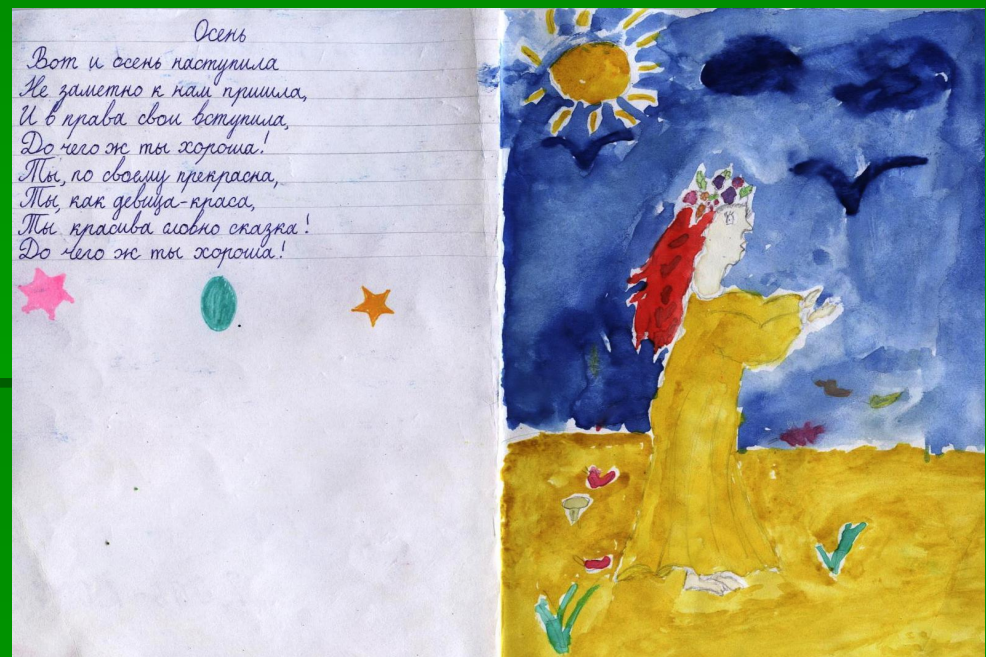 Осень
Вот и осень наступила
Не заметно к нам пришла,
И в права свои вступила,
До чего ж ты хороша!
Ты, по своему прекрасна,
Ты, как девица-краса,
Ты красива словно сказка!
До чего ж ты хороша!